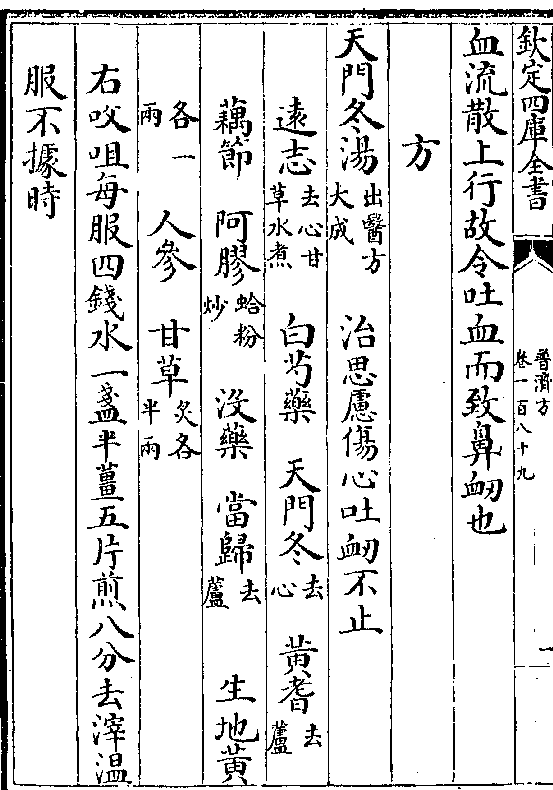 欽定四庫全書
普濟方
卷一百八十九
一
血流散上行故令吐血而致鼻衂也
方
天門冬湯出醫方大成 治思慮傷心吐衂不止
遠志去心甘草水煮 白芍藥 天門冬去心 黄耆去蘆
藕節 阿膠蛤粉炒 没藥 當歸去蘆 生地黄
各一兩 人參 甘草炙各半兩
右㕮咀每服四錢水一盞半薑五片煎八分去滓温
服不據時